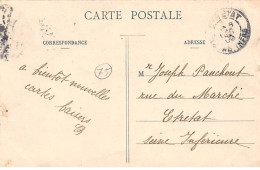 CARTE POSTALE
CORRESPONDANCE
ADRESSE
a bientôt nouvelles
cartes baisers
75
M Joseph Panchout
rue du Marché
Etretat
Seine Inférieure